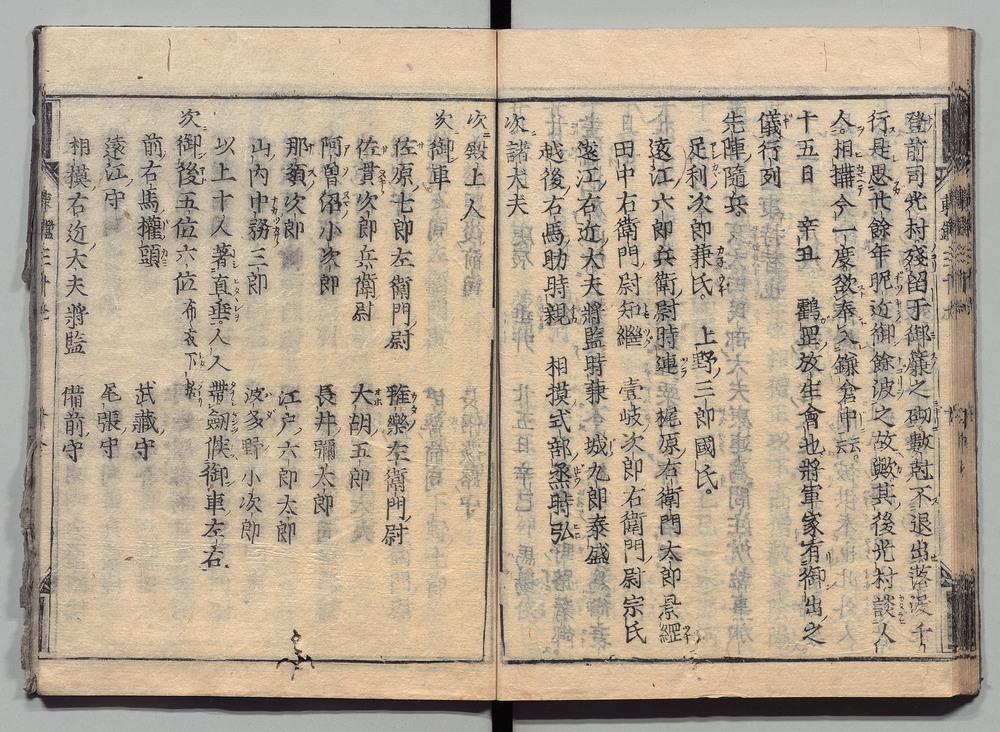 登前司光村殘留于御簾之砌數尅不退出落淚千
行是思廿餘年昵近御餘波之故歟其後光村談人〱
人相構今一度欲奉入鎌倉中云云。
十五日　辛丑　鶴罡放生會也將軍家有御出之
儀行列
先陣隨兵
足利次郎兼氏。　上野三郎國氏。
遠江六郎兵衛尉時連　梶原右衛門太郎景綱
田中右衛門尉知繼　壹岐次郎右衛門尉宗氏
遠江右近大夫將監時兼　城九郎泰盛
越後右馬助時親　相摸式部丞時弘
次諸大夫
次殿上人
次御車
佐原七郎左衛門尉　雅樂左衛門尉
佐貫次郎兵衛尉　大胡五郎
阿曽沼小次郎　長井彌太郎
那須次郎　江戸六郎太郎
山内中務三郎　波多野小次郎
以上十人著直垂人人帶劔候御車左右
次御後五位六位布衣下括
前右馬權頭　武藏守
遠江守　尾張守
相摸右近大夫將監　備前守